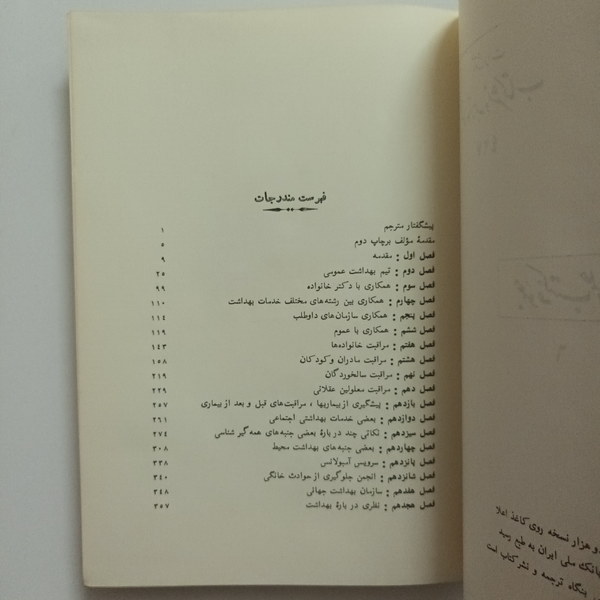 فهرست مندرجات
پیشگفتار مترجم ۱
مقدمهٔ مؤلف برچاپ دوم ۵
فصل اول : مقدمه ۹
فصل دوم : تیم بهداشت عمومی ۲۵
فصل سوم : همکاری با دکتر خانواده ۹۹
فصل چهارم : همکاری بین رشته‌های مختلف خدمات بهداشت ۱۱۰
فصل پنجم : همکاری سازمان‌های داوطلب ۱۱۴
فصل ششم : همکاری با عموم ۱۱۹
فصل هفتم : مراقبت خانواده‌ها ۱۴۳
فصل هشتم : مراقبت مادران و کودکان ۱۵۸
فصل نهم : مراقبت سالخوردگان ۲۱۹
فصل دهم : مراقبت معلولین عقلانی ۲۲۹
فصل یازدهم : پیشگیری از بیماریها ، مراقبت‌های قبل و بعد از بیماری ۲۵۷
فصل دوازدهم : بعضی خدمات بهداشتی اجتماعی ۲۶۱
فصل سیزدهم : نکاتی چند در بارهٔ بعضی جنبه‌های همه‌گیر شناسی ۲۷۴
فصل چهاردهم : بعضی جنبه‌های بهداشت محیط ۳۰۸
فصل پانزدهم : سرویس آمبولانس ۳۳۸
فصل شانزدهم : انجمن جلوگیری از حوادث خانگی ۳۴۰
فصل هفدهم : سازمان بهداشت جهانی ۳۴۸
فصل هجدهم : نظری در بارهٔ بهداشت ۳۵۷
دو هزار نسخه روی کاغذ اعلا
بانک ملی ایران به طبع رسید
بنگاه ترجمه و نشر کتاب است